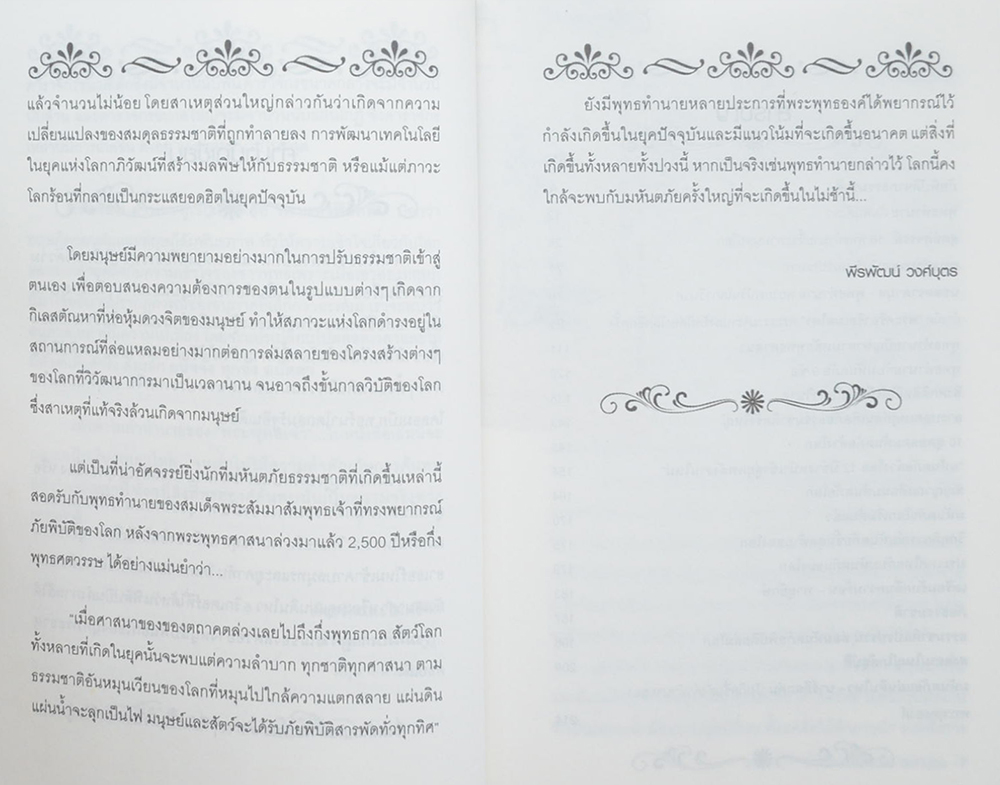 แล้วจำนวนไม่น้อย โดยสาเหตุส่วนใหญ่กล่าวกันว่าเกิดจากความ
เปลี่ยนแปลงของสมดุลธรรมชาติที่ถูกทำลายลง การพัฒนาเทคโนโลยี
ในยุคแห่งโลกาภิวัฒน์ที่สร้างมลพิษให้กับธรรมชาติ หรือแม้แต่ภาวะ
โลกร้อนที่กลายเป็นกระแสยอดฮิตในยุคปัจจุบัน
โดยมนุษย์มีความพยายามอย่างมากในการปรับธรรมชาติเข้าสู่
ตนเอง เพื่อตอบสนองความต้องการของตนในรูปแบบต่างๆ เกิดจาก
กิเลสตัณหาที่ห่อหุ้มดวงจิตของมนุษย์ ทำให้สภาวะแห่งโลกดำรงอยู่ใน
สถานการณ์ที่ล่อแหลมอย่างมากต่อการล่มสลายของโครงสร้างต่างๆ
ของโลกที่วิวัฒนาการมาเป็นเวลานาน จนอาจถึงขั้นกาลวิบัติของโลก
ซึ่งสาเหตุที่แท้จริงล้วนเกิดจากมนุษย์
แต่เป็นที่น่าอัศจรรย์ยิ่งนักที่มหันตภัยธรรมชาติที่เกิดขึ้นเหล่านี้
สอดรับกับพุทธทำนายของสมเด็จพระสัมมาสัมพุทธเจ้าที่ทรงพยากรณ์
ภัยพิบัติของโลก หลังจากพระพุทธศาสนาล่วงมาแล้ว 2,500 ปีหรือกึ่ง
พุทธศตวรรษ ได้อย่างแม่นยำว่า...
"เมื่อศาสนาของของตถาคตล่วงเลยไปถึงกึ่งพุทธกาล สัตว์โลก
ทั้งหลายที่เกิดในยุคนั้นจะพบแต่ความลำบาก ทุกชาติทุกศาสนา ตาม
ธรรมชาติอันหมุนเวียนของโลกที่หมุนไปใกล้ความแตกสลาย แผ่นดิน
แผ่นน้ำจะลุกเป็นไฟ มนุษย์และสัตว์จะได้รับภัยพิบัติสารพัดทั่วทุกทิศ"
ยังมีพุทธทำนายหลายประการที่พระพุทธองค์ได้พยากรณ์ไว้
กำลังเกิดขึ้นในยุคปัจจุบันและมีแนวโน้มที่จะเกิดขึ้นอนาคต แต่สิ่งที่
เกิดขึ้นทั้งหลายทั้งปวงนี้ หากเป็นจริงเช่นพุทธทำนายกล่าวไว้ โลกนี้คง
ใกล้จะพบกับมหันตภัยครั้งใหญ่ที่จะเกิดขึ้นในไม่ช้านี้...
พีรพัฒน์ วงศ์บุตร